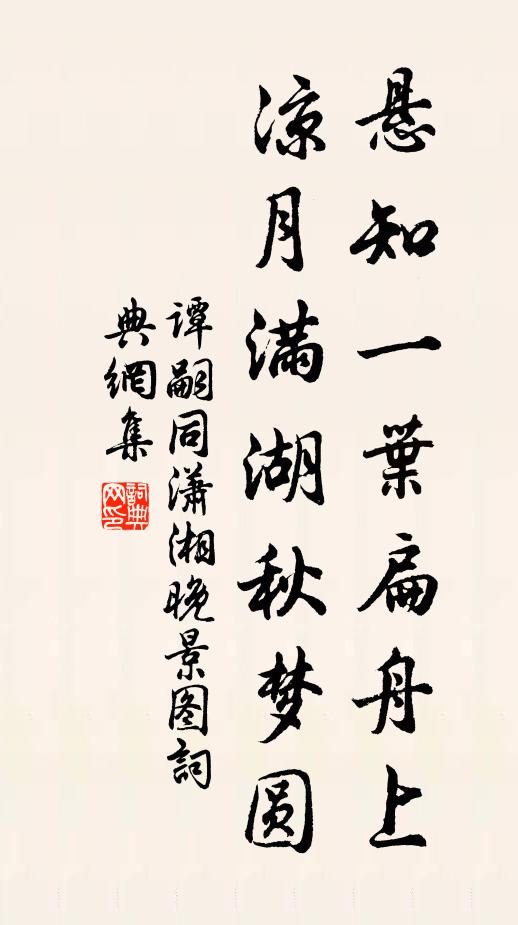 悬知一葉扁舟上
凉月满湖秋梦圆
谭嗣同潇湘晚景图詞
典網集
詞典网印